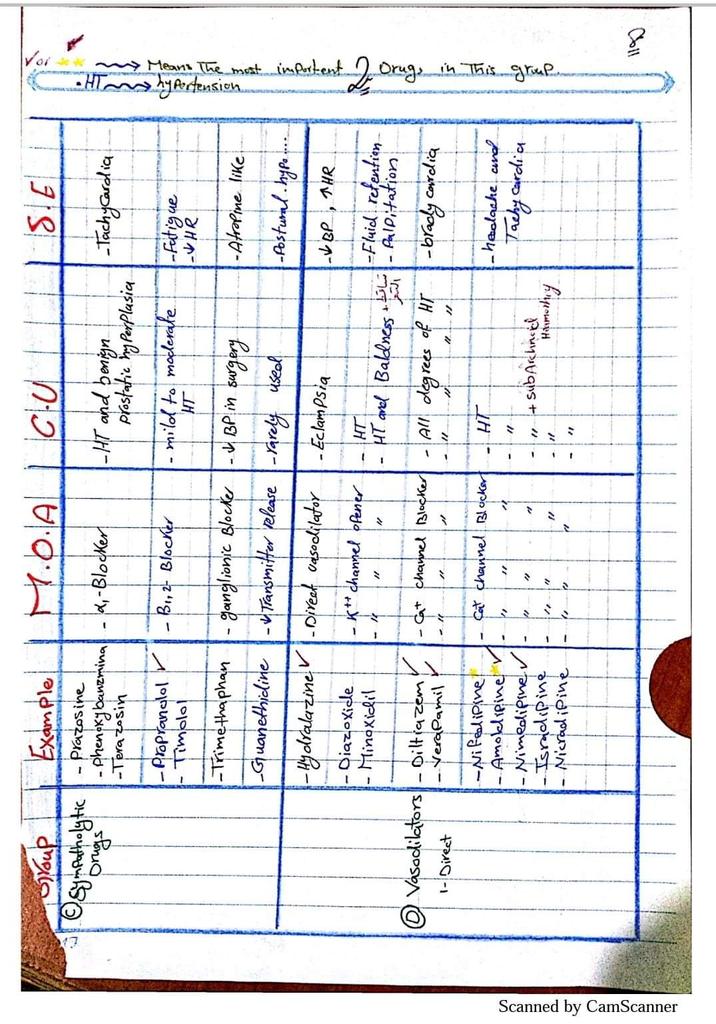 √or ** ⟿ Means The most importent 2 Drugs in This group.
• HT ⟿ hypertension
Group Example M.O.A C.U S.E
Ⓒ Sympatholytic
Drugs
- Prazosine
- Phenoxybanzmina
- Terazosin
- α,-Blocker
- HT and benign
prostatic hyperplasia
- TachyCardia
- Propranolol ✓
- Timolol
- B1,2- Blocker
- mild to moderate
HT
- Fatigue
- ↓HR
- Trimethaphan
- ganglionic Blocker
- ↓BP in surgery
- Atropine like
- Guanethidine
- ↓Transmitter release
- rarely used
- Postural hypo....
Ⓓ Vasodilators
1- Direct
- Hydralazine ✓
- Direct vasodilator
- Eclampsia
- ↓BP, ↑HR
- Diazoxide
- Minoxidil
- K++ channel opener
- " " "
- HT
- HT and Baldness +
- Fluid retention
- Palpitation
- Diltiazem ✓
- Verapamil ✓
- Ca+ channel Blocker
- " " "
- All degrees of HT
- " " " "
- brady cardia
- Nifedipine *
- Amoldipine * ✓
- Nimedipine ✓
- Isradipine
- Nicradipine
- Ca+ channel Blocker
- " " "
- " " "
- " " "
- " " "
- HT
- "
- " + subArchnoid
Haemorrhy
- "
- "
- headache and
Tachy Cardia
17
Scanned by CamScanner